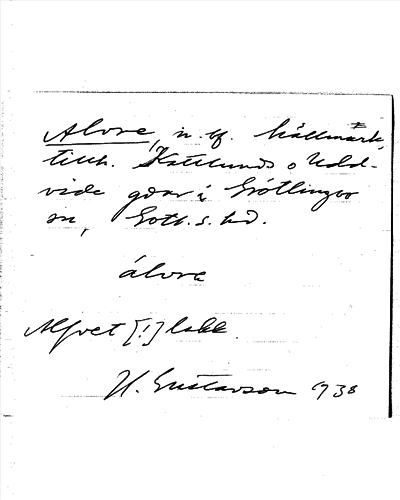 Alvre, n. på hällmark,
till. Kattlunds o Udd-
vide gdar i Grötlingbo
sn, Gotl. s. hd.
álvrę
Alfvet [!] lakk.
H. Gustavson 1938